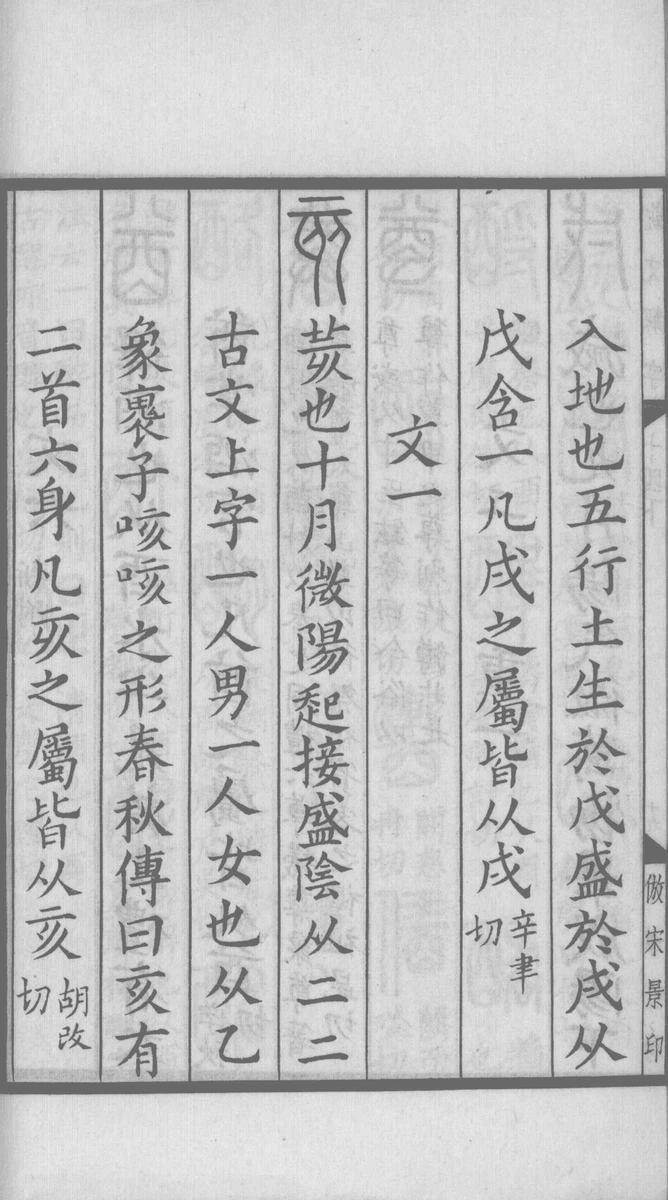 入地也五行土生於戊盛於戌从
戊含一凡戌之屬皆从戌辛聿切
文一
亥荄也十月微陽起接盛陰从二二
古文上字一人男一人女也从乙
象褢子咳咳之形春秋傳曰亥有
二首六身凡亥之屬皆从亥胡改切
倣宋景印